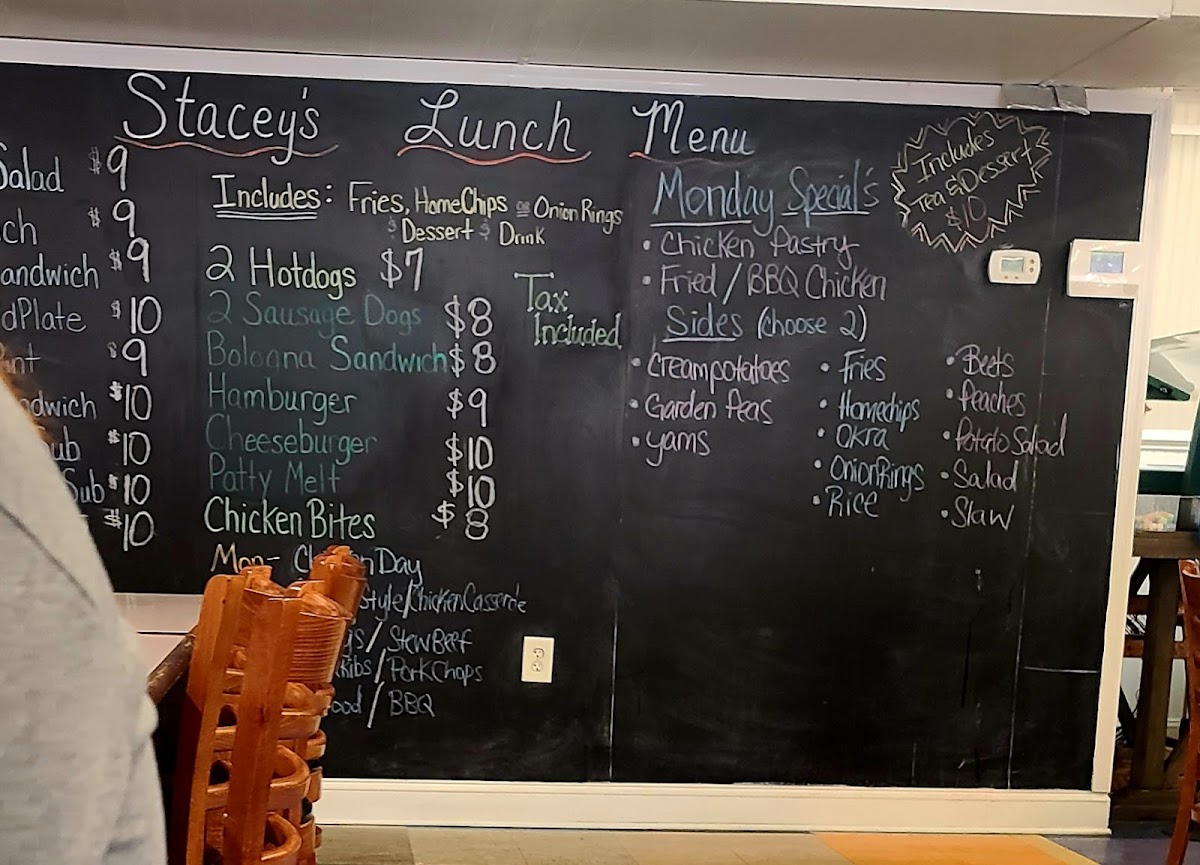 Stacey's Lunch Menu
Salad $9
$9
$9
$10
$9
$10
$10
Sub $10
$10
Includes: Fries, HomeChips or Onion Rings
& Dessert & Drink
2 Hotdogs $7
2 Sausage Dogs $8
Bologna Sandwich $8
Hamburger $9
Cheeseburger $10
Patty Melt $10
Chicken Bites $8
Tax
Included
Mon- Day
Style/Chicken Casserole
/ Stew Beef
/ Pork Chops
/ BBQ
Monday Special's
• Chicken Pastry
• Fried / BBQ Chicken
Sides (choose 2)
• Creampotatoes
• Garden Peas
• yams
• Fries
• Homechips
• Okra
• Onion Rings
• Rice
• Beets
• Peaches
• Potato Salad
• Salad
• Slaw
Includes
Tea & Dessert
$10